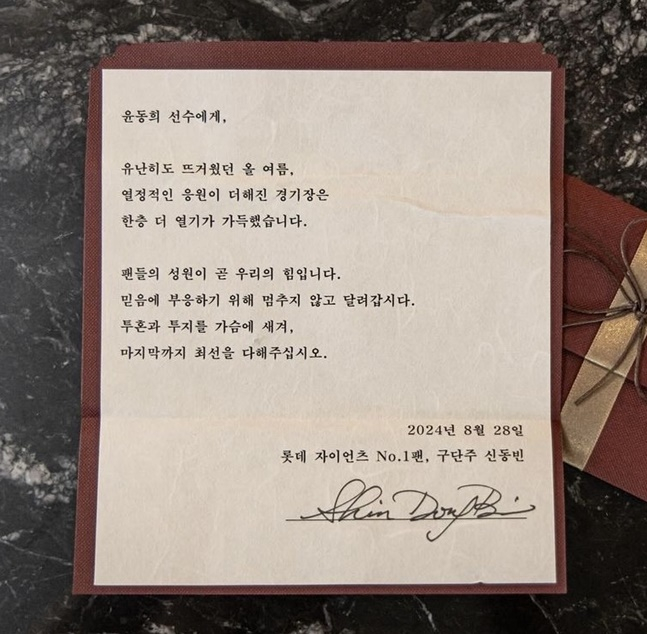 윤동희 선수에게,
유난히도 뜨거웠던 올 여름,
열정적인 응원이 더해진 경기장은
한층 더 열기가 가득했습니다.
팬들의 성원이 곧 우리의 힘입니다.
믿음에 부응하기 위해 멈추지 않고 달려갑시다.
투혼과 투지를 가슴에 새겨,
마지막까지 최선을 다해주십시오.
2024년 8월 28일
롯데 자이언츠 No.1팬, 구단주 신동빈
Shin Dong Bin